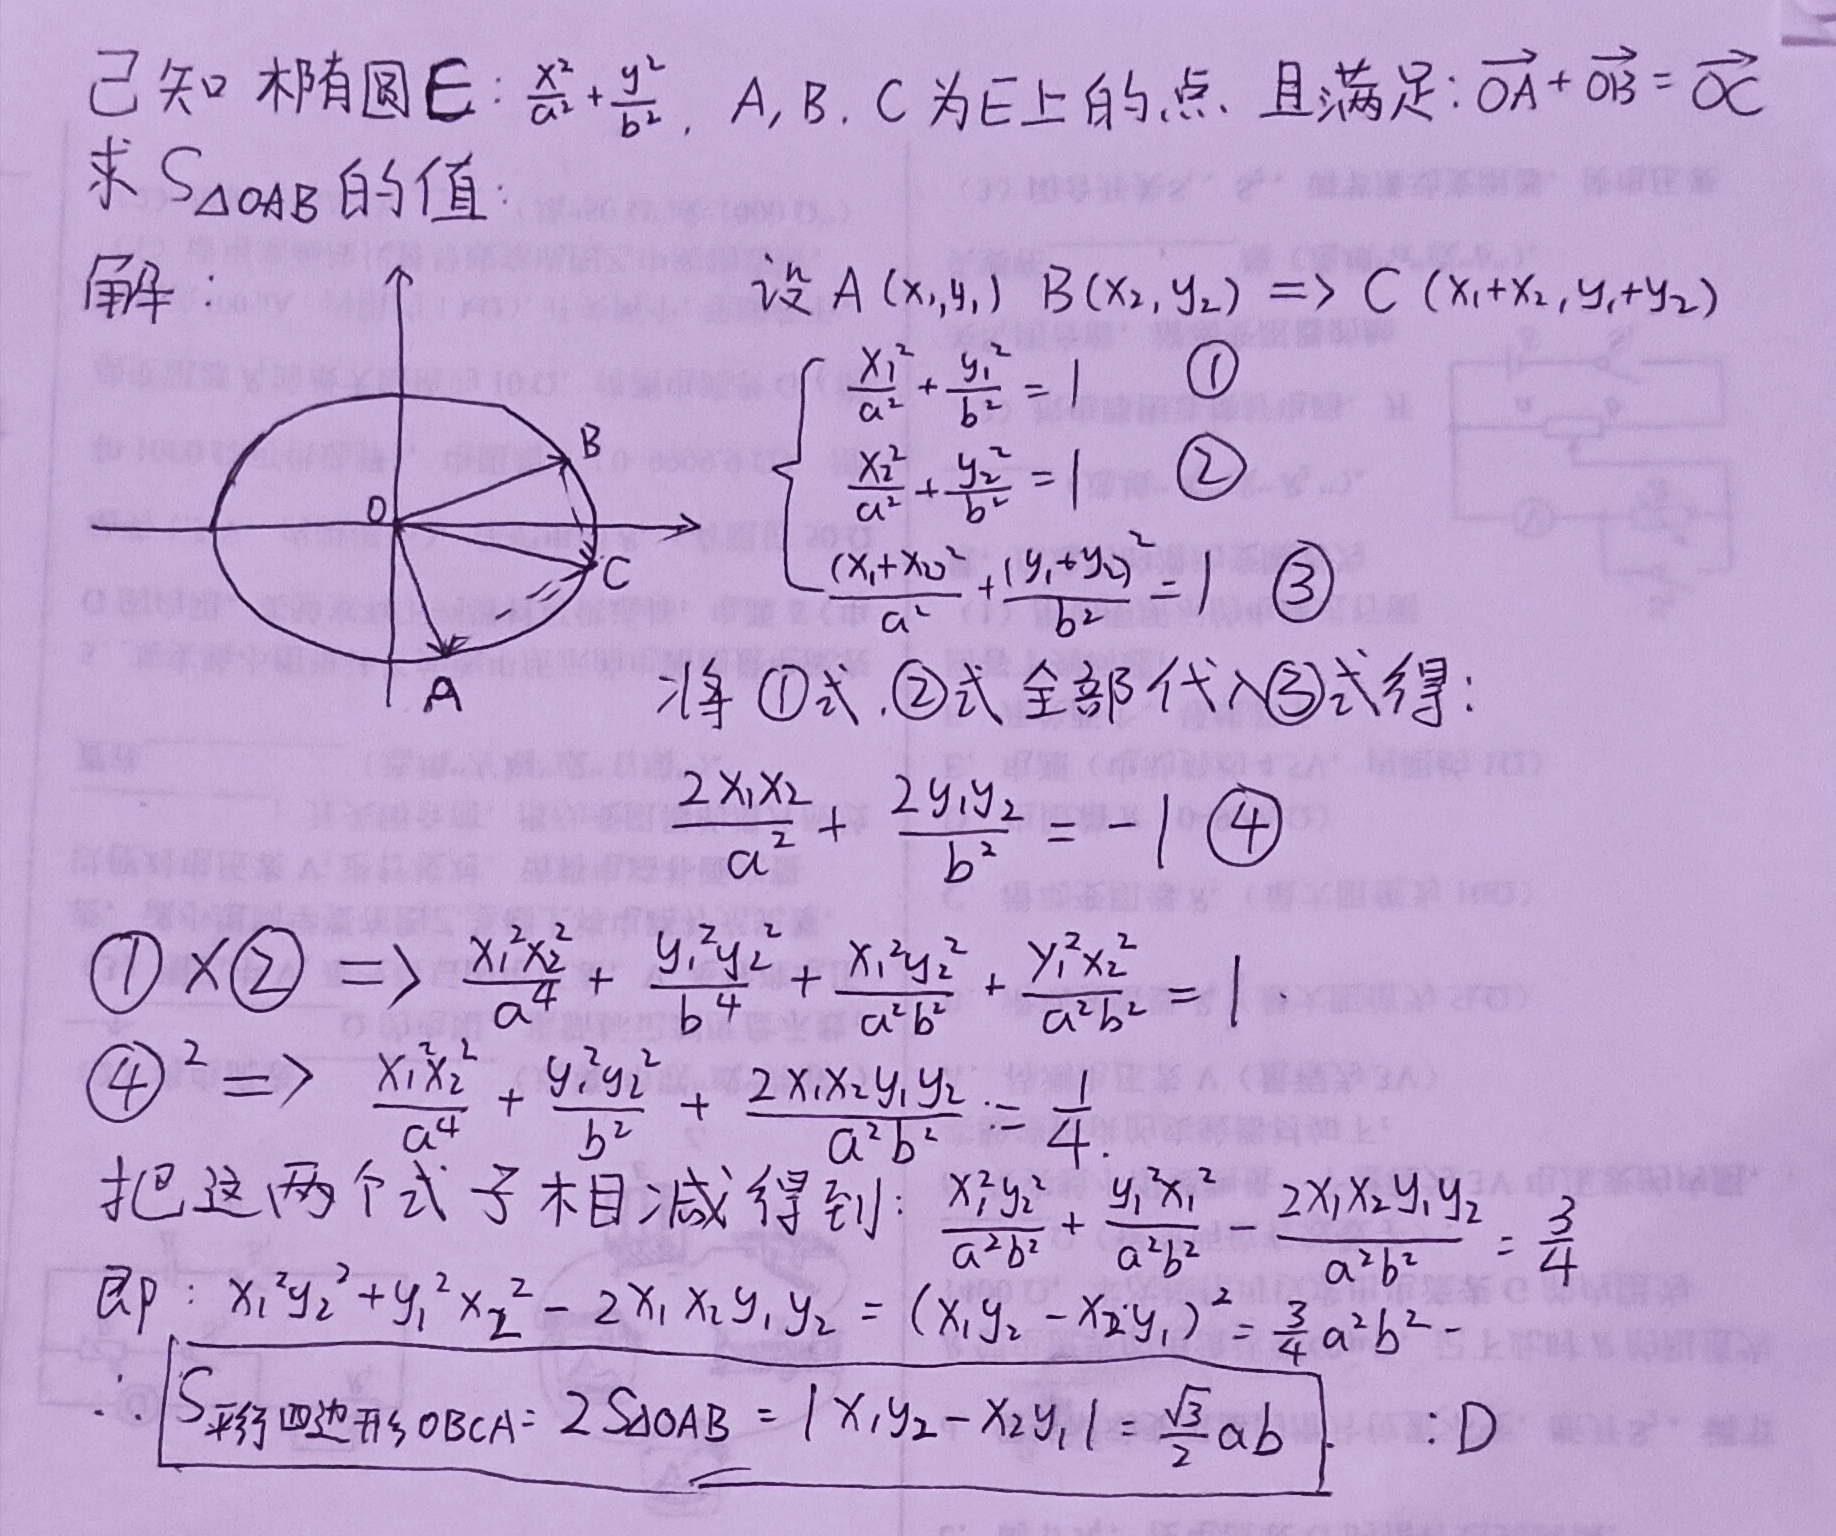 已知椭圆E：x²/a²+y²/b²，A，B．C为E上的点、且满足：OA→+OB→=OC→
求S△OAB的值：
解：
设A(x₁,y₁) B(x₂,y₂) => C(x₁+x₂,y₁+y₂)
x₁²/a²+y₁²/b²=1 ①
x₂²/a²+y₂²/b²=1 ②
(x₁+x₂)²/a²+(y₁+y₂)²/b²=1 ③
B
O
C
A
将①式．②式全部代入③式得：
2x₁x₂/a²+2y₁y₂/b²=-1 ④
①×② => x₁²x₂²/a⁴+y₁²y₂²/b⁴+x₁²y₂²/a²b²+y₁²x₂²/a²b²=1．
④² => x₁²x₂²/a⁴+y₁²y₂²/b²+2x₁x₂y₁y₂/a²b²=1/4．
把这两个式子相减得到：x₁²y₂²/a²b²+y₁²x₁²/a²b²-2x₁x₂y₁y₂/a²b²=3/4
即：x₁²y₂²+y₁²x₂²-2x₁x₂y₁y₂=(x₁y₂-x₂y₁)²=3/4a²b²-
∴S平行四边形OBCA=2S△OAB=|x₁y₂-x₂y₁|=√3/2ab． :D